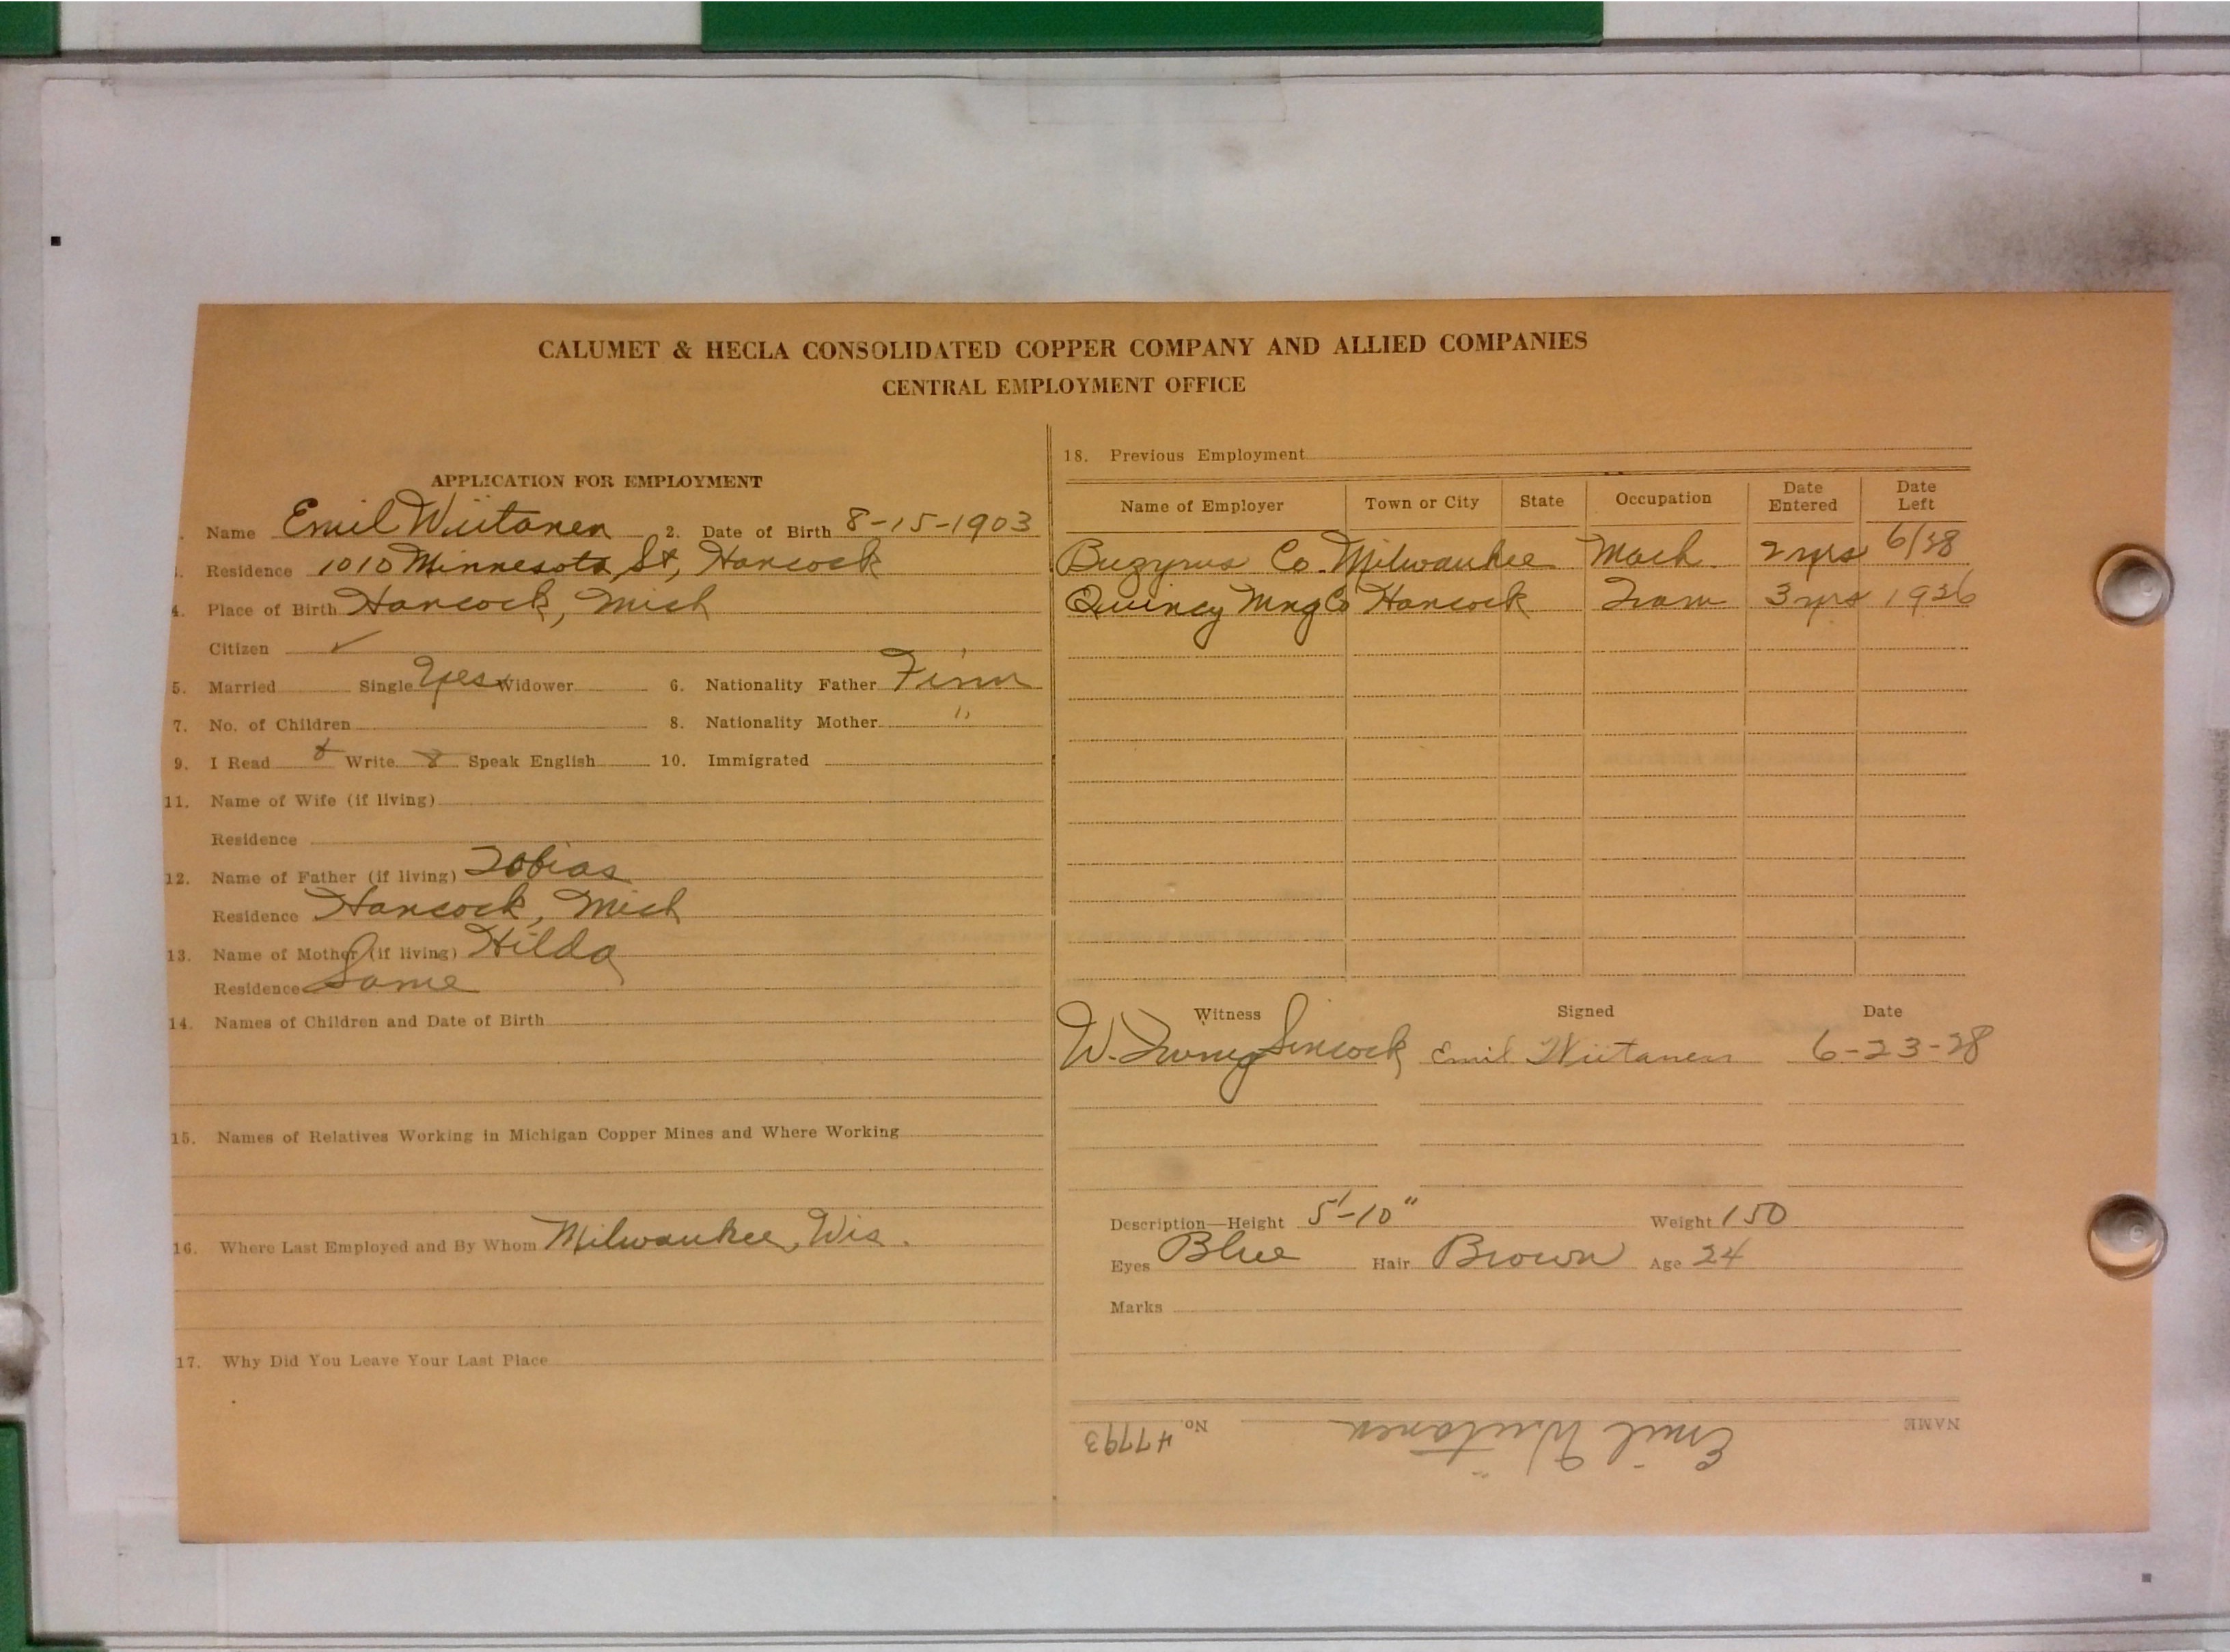 CALUMET & HECLA CONSOLIDATED COPPER COMPANY AND ALLIED COMPANIES
CENTRAL EMPLOYMENT OFFICE
APPLICATION FOR EMPLOYMENT
Name Emil Wiitanen 2. Date of Birth 8-15-1903
Residence 1010 Minnesota St, Hancock
4. Place of Birth Hancock, Mich
Citizen ✓
5. Married Single Yes Widower 6. Nationality Father Finn
7. No. of Children 8. Nationality Mother "
9. I Read Write Speak English 10. Immigrated
11. Name of Wife (if living)
Residence
12. Name of Father (if living) Tobias
Residence Hancock, Mich
13. Name of Mother (if living) Hilda
Residence Same
14. Names of Children and Date of Birth
15. Names of Relatives Working in Michigan Copper Mines and Where Working
16. Where Last Employed and By Whom Milwaukee, Wis.
17. Why Did You Leave Your Last Place
18. Previous Employment
Name of Employer Town or City State Occupation Date Entered Date Left
Bugyrus Co. Milwaukee Mach. 2 yrs 6/28
Quincy Mng Co Hancock Tram 3 yrs 1926
Witness Signed Date
W. Sincock Emil Wiitanen 6-23-28
Description—Height 5'-10" Weight 150
Eyes Blue Hair Brown Age 24
Marks
NAME Emil Wiitanen No. 47793